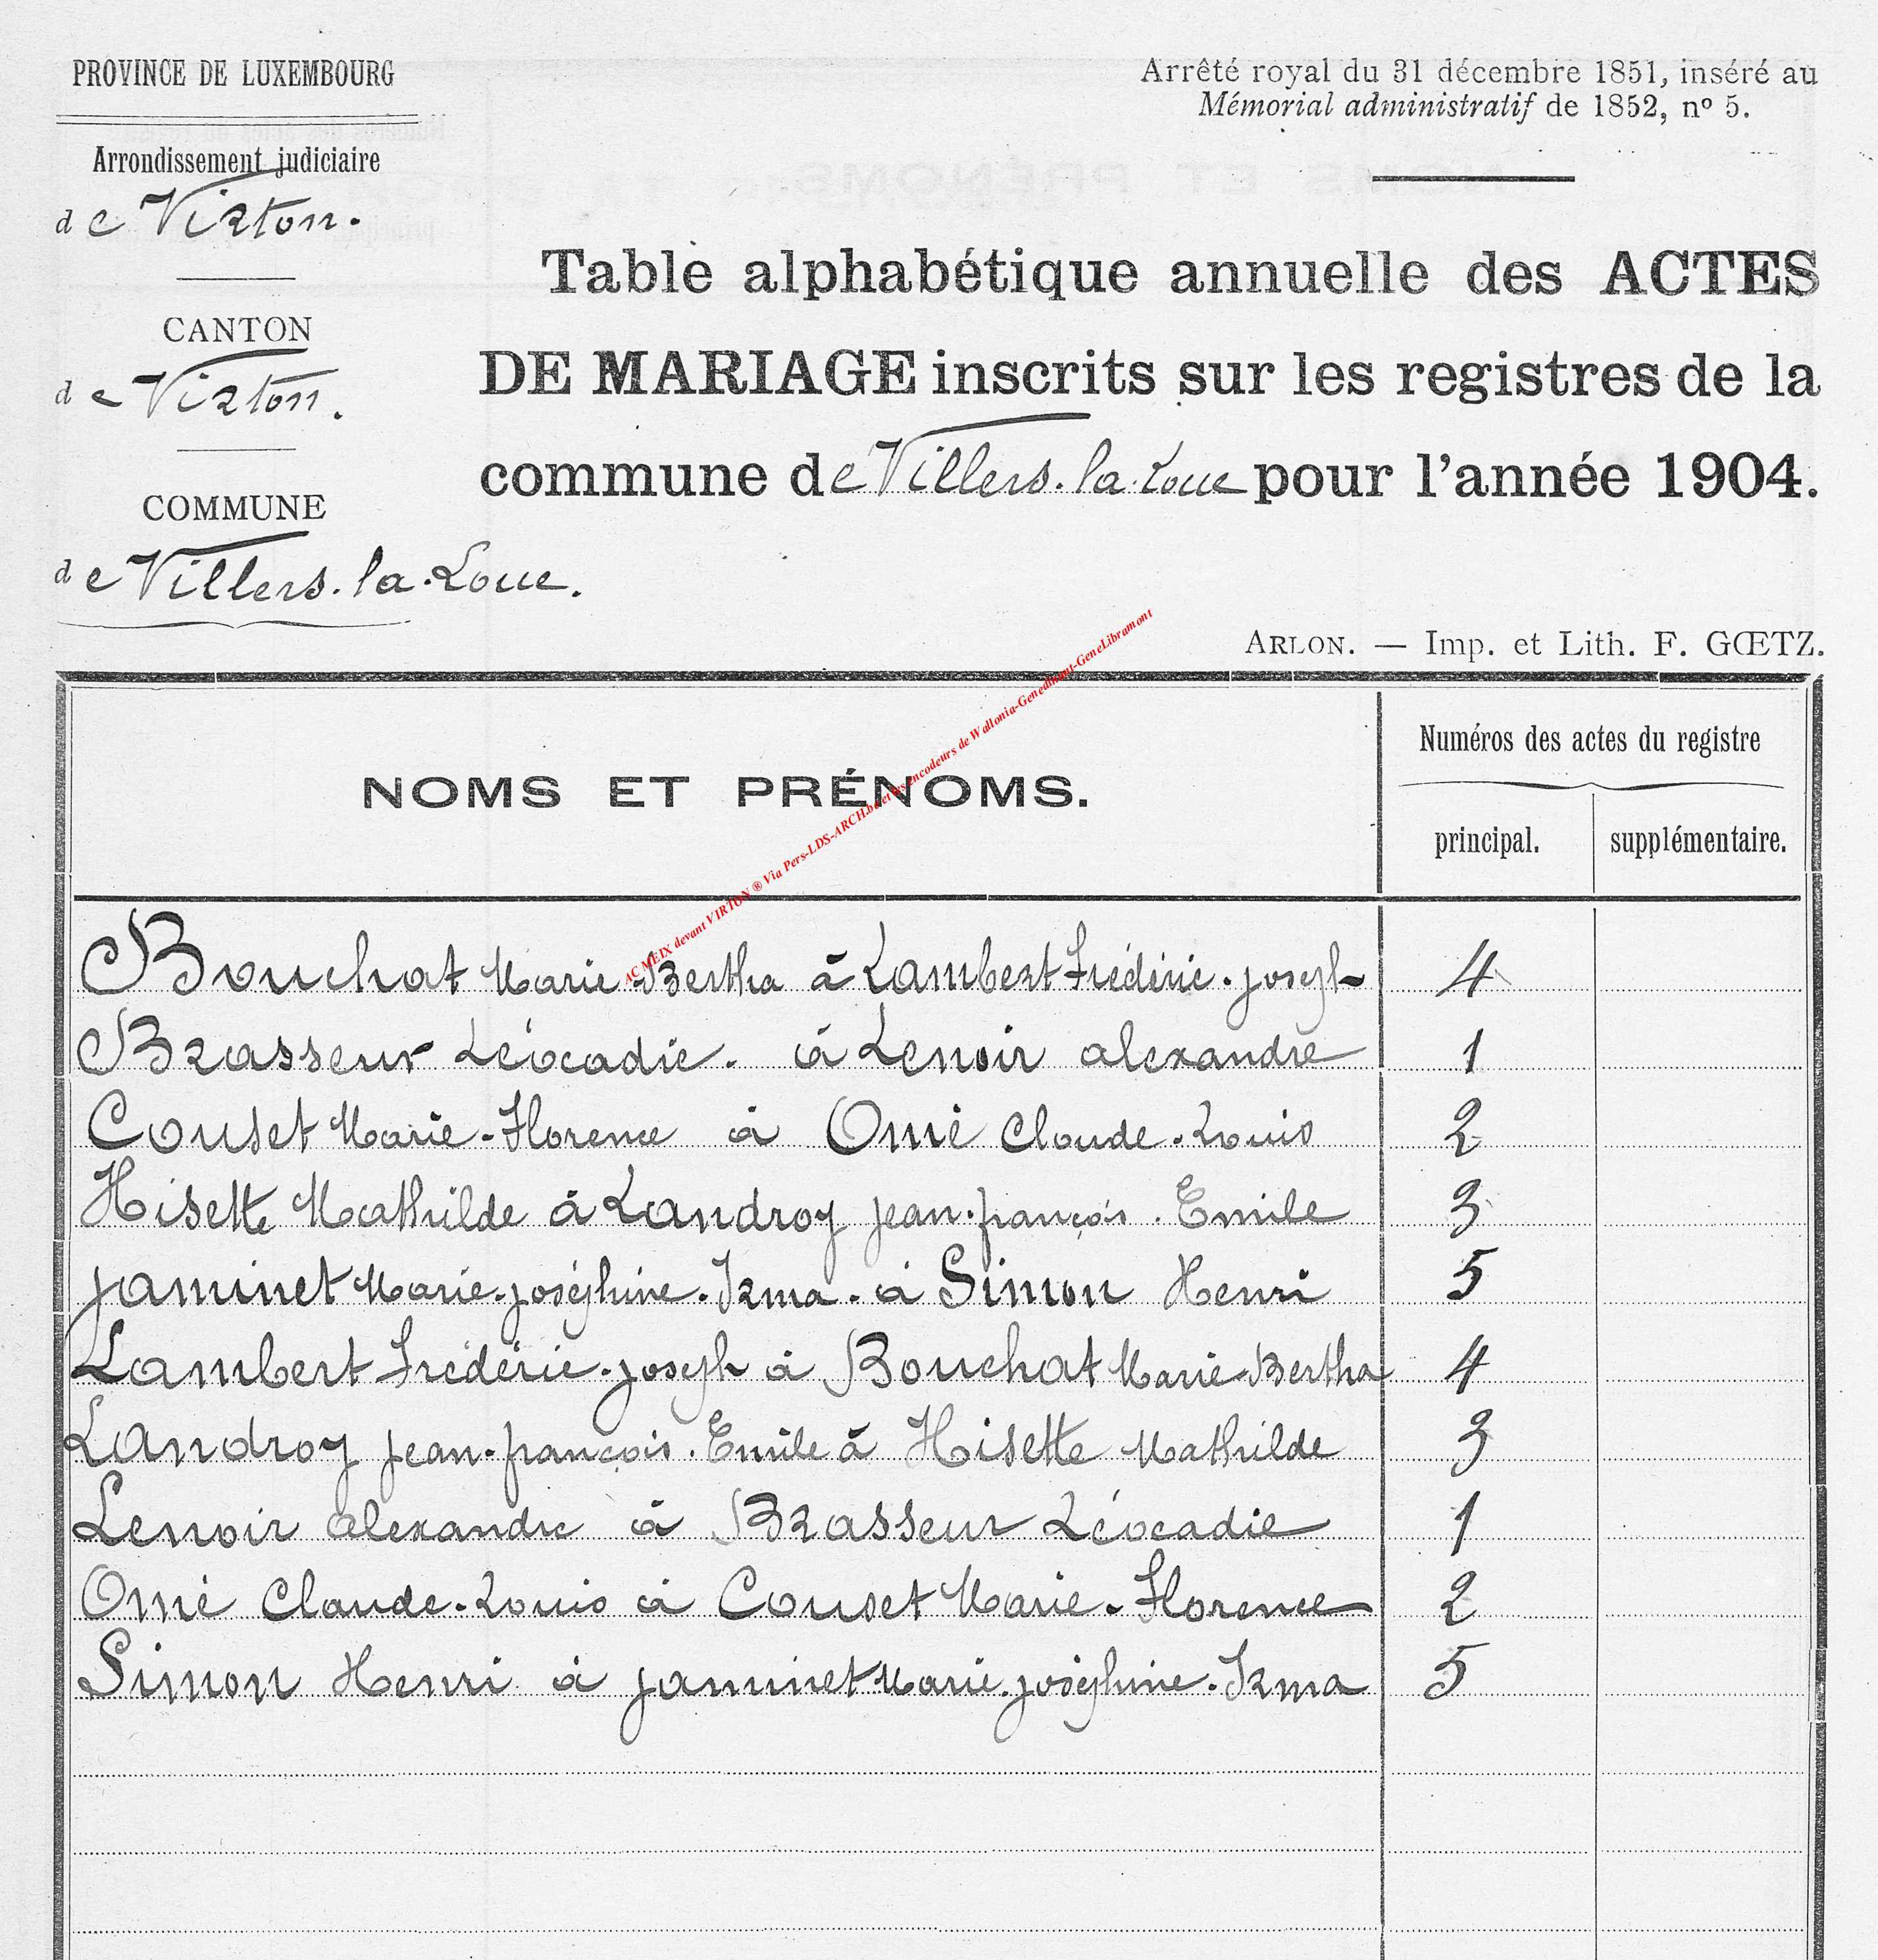 PROVINCE DE LUXEMBOURG
Arrondissement judiciaire
de Virton.
CANTON
de Virton.
COMMUNE
de Villers-la-Loue.
Arrêté royal du 31 décembre 1851, inséré au
Mémorial administratif de 1852, nº 5.
Table alphabétique annuelle des ACTES
DE MARIAGE inscrits sur les registres de la
commune de Villers-la-Loue pour l'année 1904.
ARLON. — Imp. et Lith. F. GŒTZ.
NOMS ET PRÉNOMS.
Numéros des actes du registre
principal. supplémentaire.
AC MEIX devant VIRTON ® Via Pers-LDS-ARCH.be et les encodeurs de Wallonia-Genedinant-GeneLibramont
Bouchat Marie-Bertha à Lambert Frédéric-joseph 4
Brasseur Léocadie. à Lenoir alexandre 1
Couset Marie-Florence à Omé Claude-Louis 2
Hisette Mathilde à Landroy jean-françois-Emile 3
jaminet Marie-joséphine-Irma. à Simon Henri 5
Lambert Frédéric-joseph à Bouchat Marie-Bertha 4
Landroy jean-françois-Emile à Hisette Mathilde 3
Lenoir alexandre à Brasseur Léocadie 1
Omé Claude-Louis à Couset Marie-Florence 2
Simon Henri à jaminet Marie-joséphine-Irma 5